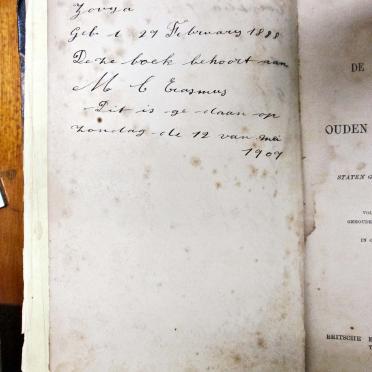 Zovya
Geb t 29 Februarij 1888
Deze boek behoort aan
M C Erasmus
Dit is ge daan op
zondag de 12 van mei
1907
DE
OUDEN
STATEN G
VOL
GEHOUDE
IN O
BRITSCHE